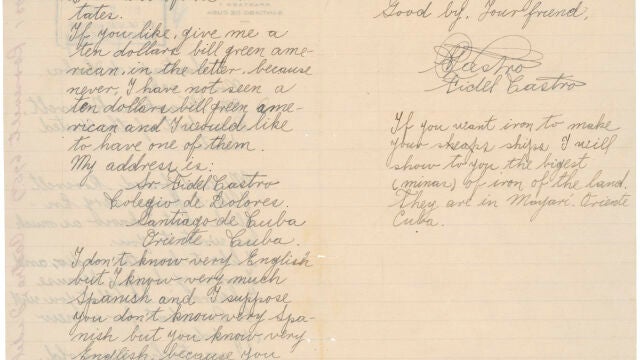 tates.
If you like, give me a
ten dollars bill green ame-
rican, in the letter, because
never, I have not seen a
ten dollars bill green ame-
rican and I would like
to have one of them.
My address is:
Sr. Fidel Castro
Colegio de Dolores.
Santiago de Cuba
Oriente. Cuba.
I don't know very English
but I know very much
Spanish and I suppose
you don't know very Spa-
nish but you know very
English because you
Good by. Your friend,
Castro
Fidel Castro
If you want iron to make
your sheaps ships I will
show to you the bigest
(minas) of iron of the land.
They are in Mayari. Oriente
Cuba.